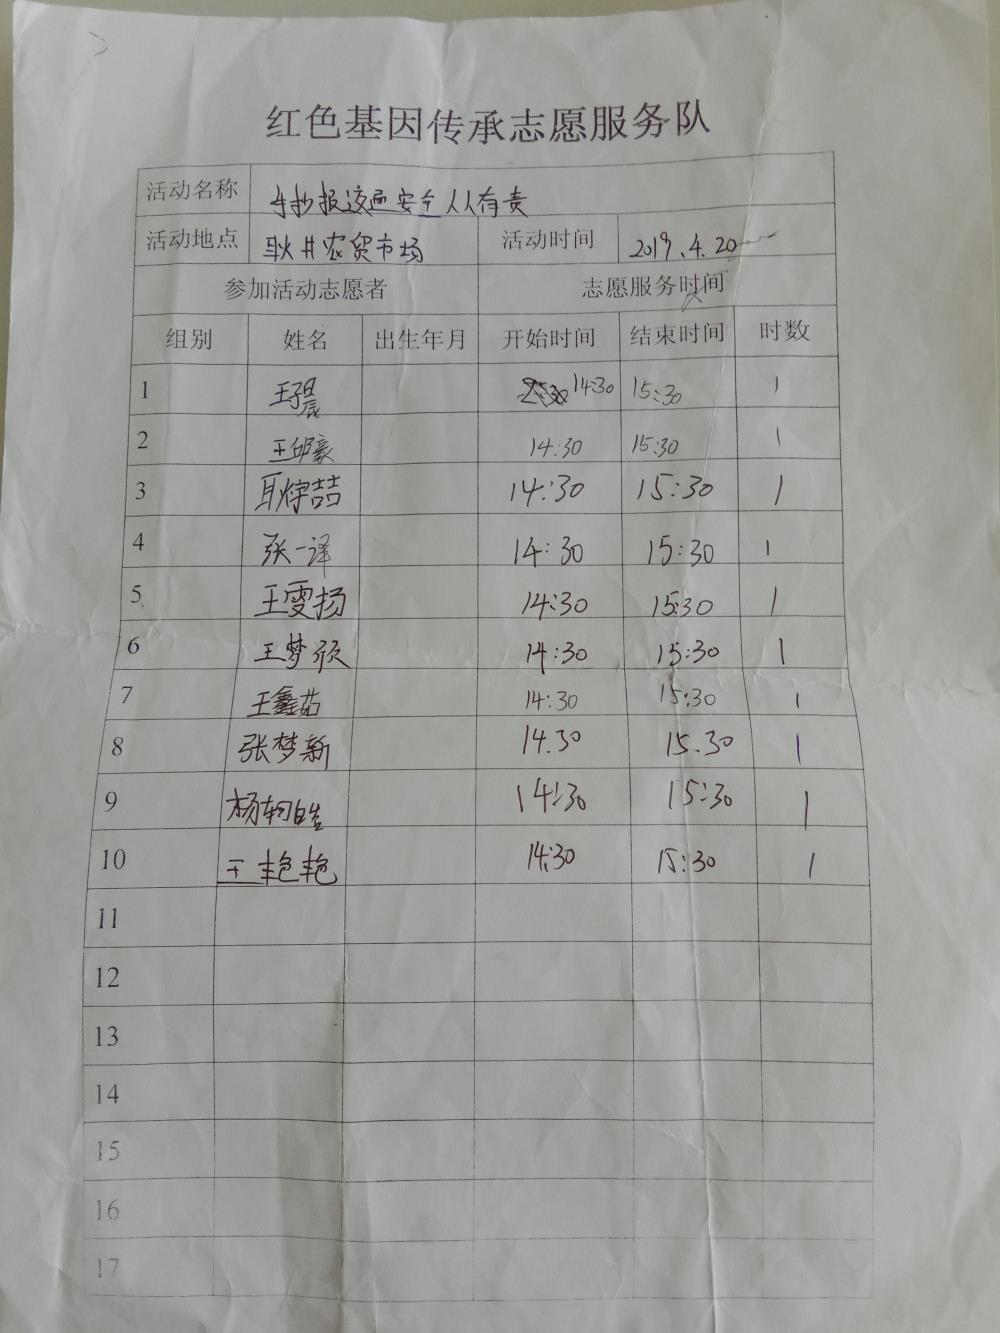 红色基因传承志愿服务队
活动名称 手抄报交通安全人人有责
活动地点 耿井农贸市场 活动时间 2019.4.20
参加活动志愿者 志愿服务时间
组别 姓名 出生年月 开始时间 结束时间 时数
1 王子晨 14:30 15:30 1
2 王邱豪 14:30 15:30 1
3 耿宇喆 14:30 15:30 1
4 张一译 14:30 15:30 1
5 王雯扬 14:30 15:30 1
6 王梦颀 14:30 15:30 1
7 王鑫茹 14:30 15:30 1
8 张梦新 14.30 15.30 1
9 杨轲皓 14:30 15:30 1
10 王艳艳 14:30 15:30 1
11
12
13
14
15
16
17